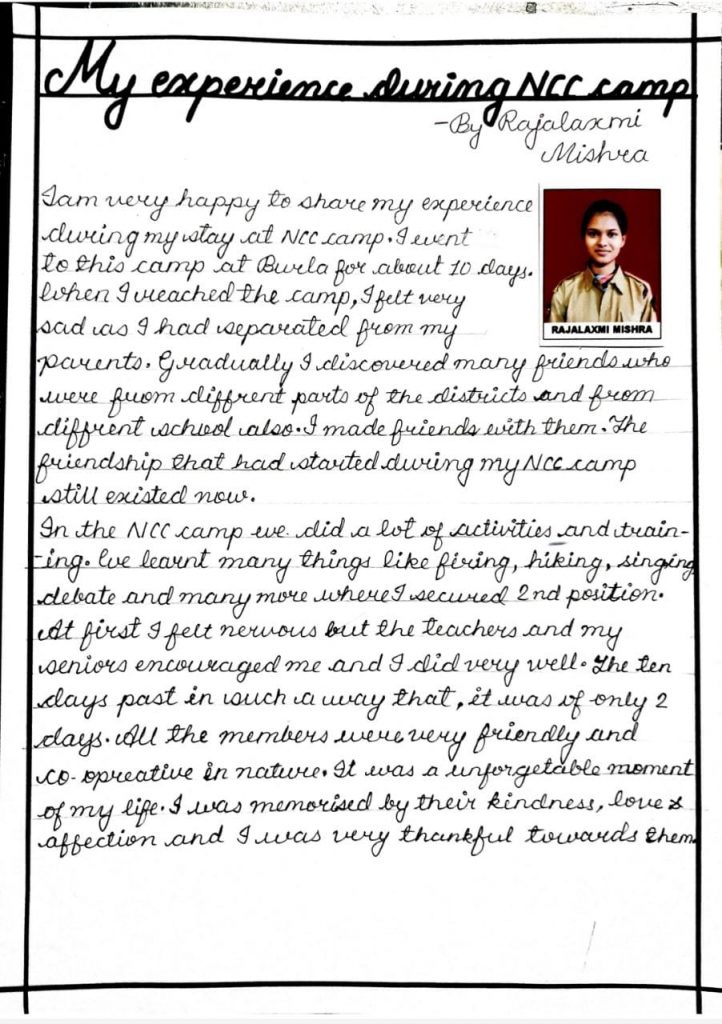 My experience during NCC camp
-By Rajalaxmi
Mishra
I am very happy to share my experience
during my stay at NCC camp. I went
to this camp at Burla for about 10 days.
When I reached the camp, I felt very
sad as I had separated from my
RAJALAXMI MISHRA
parents. Gradually I discovered many friends who
were from diffrent parts of the districts and from
diffrent school also. I made friends with them. The
friendship that had started during my NCC camp
still existed now.
In the NCC camp we did a lot of activities and train-
-ing. We learnt many things like firing, hiking, singing
debate and many more where I secured 2nd position.
At first I felt nervous but the teachers and my
seniors encouraged me and I did very well. The ten
days past in such a way that, it was of only 2
days. All the members were very friendly and
co-opreative in nature. It was a unforgetable moment
of my life. I was memorised by their kindness, love &
affection and I was very thankful towards them.